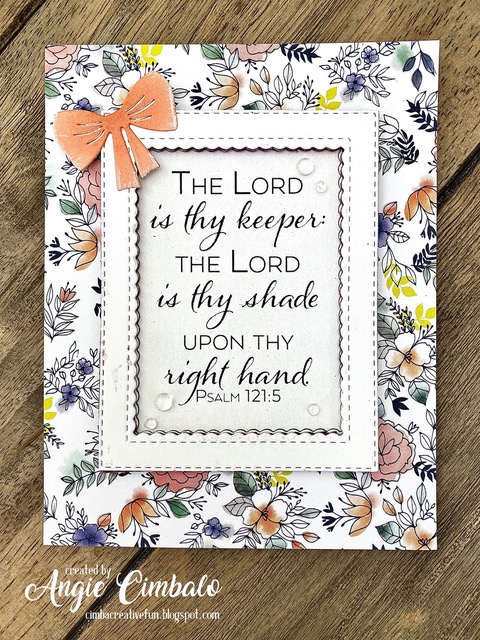 THE LORD
is thy keeper:
THE LORD
is thy shade
UPON THY
right hand.
PSALM 121:5
created by
Angie Cimbalo
cimbacreativefun.blogspot.com